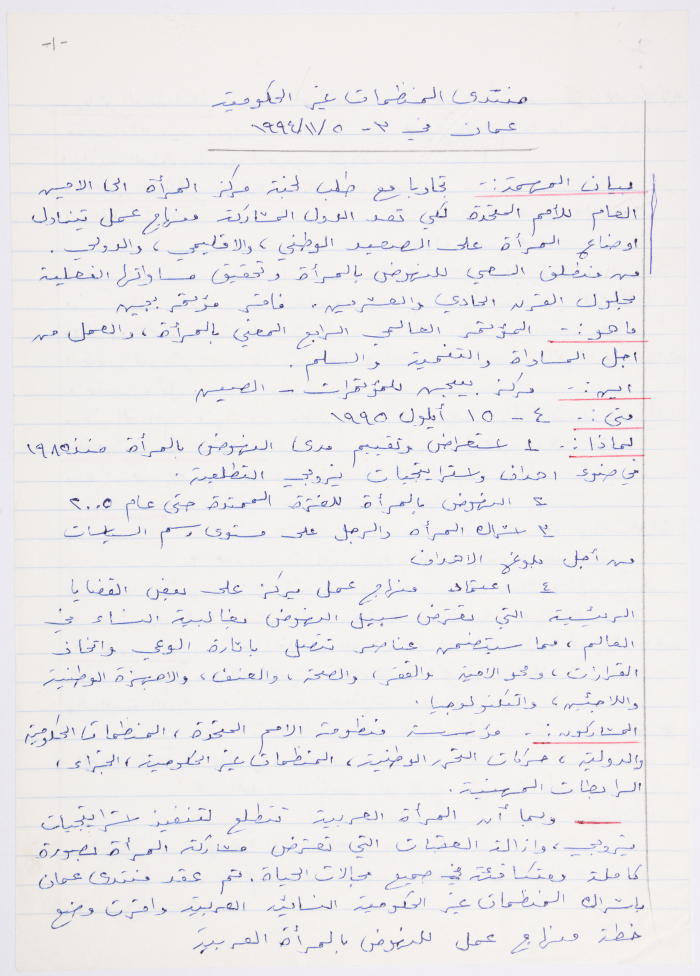 -١-
منتدى المنظمات غير الحكومية
عمان في ٣ - ٥ /١١/ ١٩٩٤
بيان المهمة :- تجاوبا مع طلب لجنة مركز المرأة الى الامين
العام للأمم المتحدة لكي تعد الدول المشاركة منهاج عمل يتناول
اوضاع المرأة على الصعيد الوطني ، والاقليمي ، والدولي .
من منطلق السعي للنهوض بالمرأة وتحقيق مساواتها الفعلية
بحلول القرن الحادي والعشرين . فاقر مؤتمر بجين
ما هو :- المؤتمر العالمي الرابع المعني بالمرأة ، والعمل من
اجل المساواة والتنمية والسلم .
اين :- مركز بيجين للمؤتمرات - الصين
متى :- ٤ - ١٥ أيلول ١٩٩٥
لماذا :- ١ استعراض وتقييم مدى النهوض بالمرأة منذ ١٩٨٥
في ضوء اهداف واستراتيجيات نيروبي التطلعية .
٢ النهوض بالمرأة للفترة الممتدة حتى عام ٢٠٠٥
٣ اشراك المرأه والرجل على مستوى رسم السياسات
من أجل بلوغ الاهداف
٤ اعتماد منهاج عمل يركز على بعض القضايا
الرئيسية التي تعترض سبيل النهوض بغالبية النساء في
العالم ، مما سيتضمن عناصر تتصل باثارة الوعي واتخاذ
القرارات ، ومحو الامية والفقر ، والصحة ، والعنف ، والاجهزة الوطنية
واللاجئين ، والتكنولوجيا .
المشاركون :- مؤسسة منظومة الامم المتحدة ، المنظمات الحكومية
والدولية ، حركات التحرر الوطنية ، المنظمات غير الحكومية ، الخبراء ،
الرابطات المهنية .
وبما أن المرأة العربية تتطلع لتنفيذ استراتيجيات
نيروبي ، وازالة العقبات التي تعترض مشاركة المرأة بصورة
كاملة ومتكافئة في جميع مجالات الحياة . تم عقد منتدى عمان
باشراك المنظمات غير الحكومية النسائية العربية واقرت وضع
خطة منهاج عمل للنهوض بالمرأة العربية